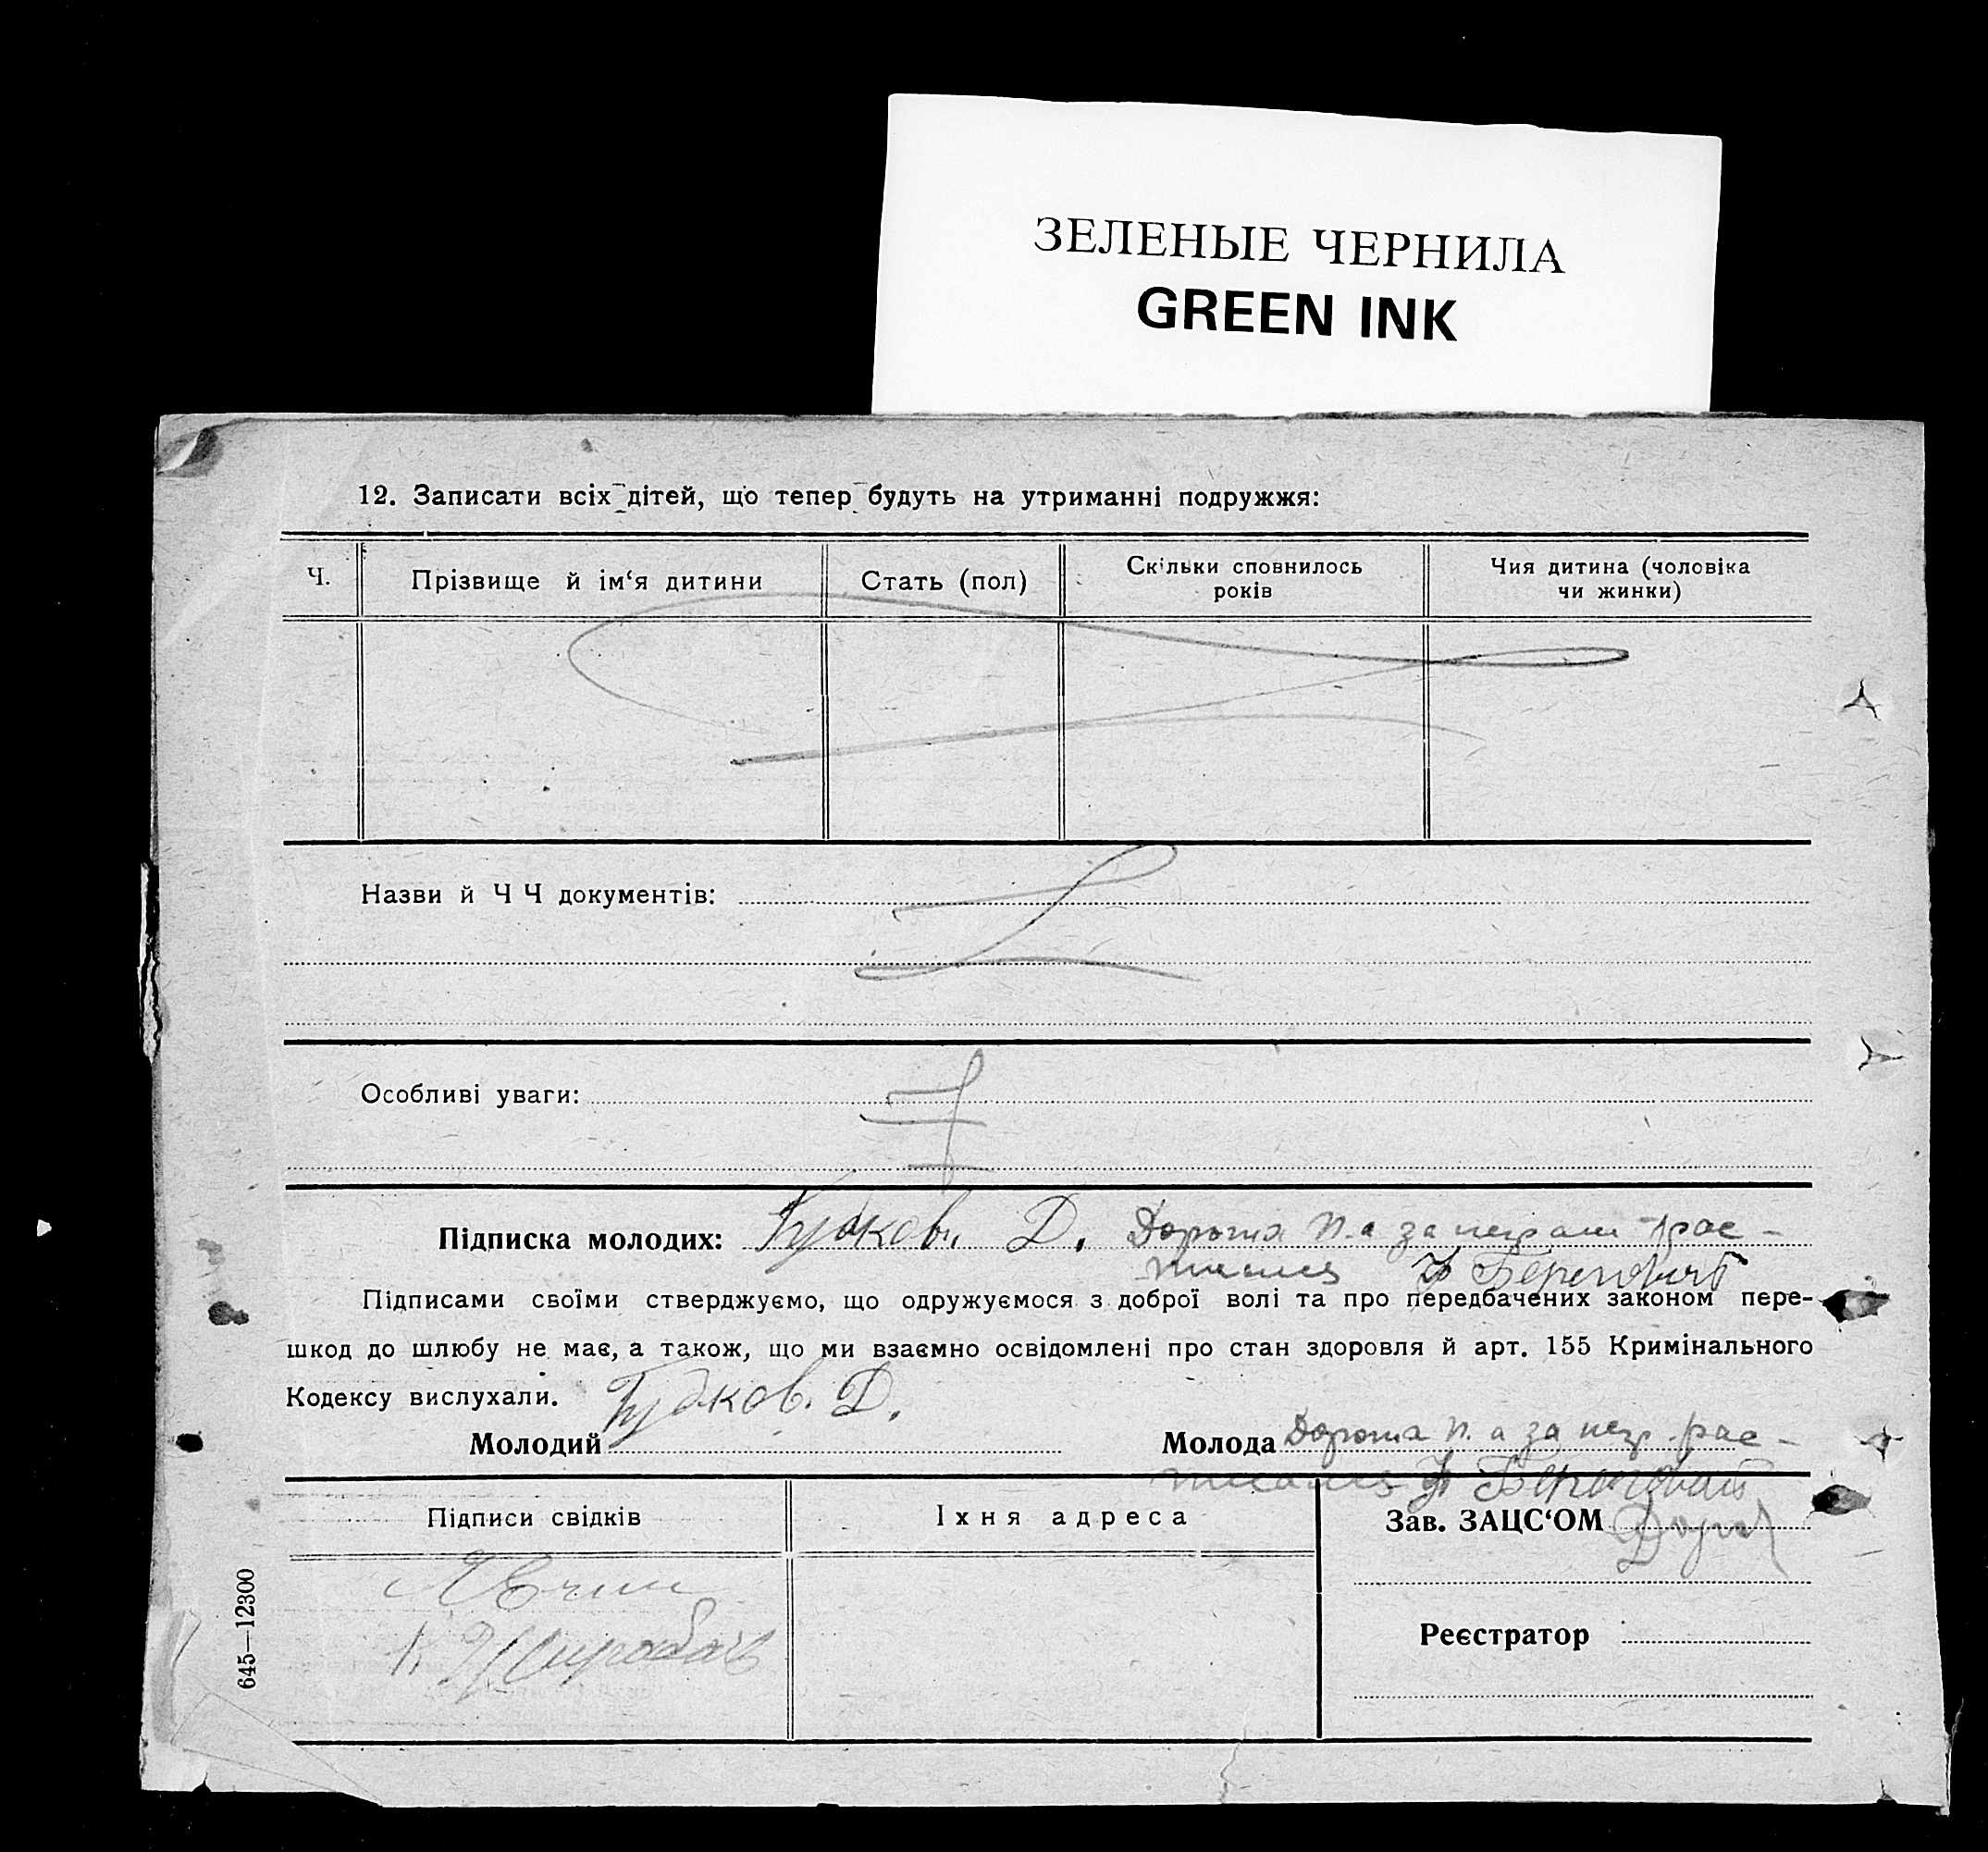 ЗЕЛЕНЫЕ ЧЕРНИЛА
GREEN INK
12. Записати всіх дітей, що тепер будуть на утриманні подружжя:
Ч. Прізвище й ім‘я дитини Стать (пол) Скільки сповнилось років Чия дитина (чоловіка чи жинки)
Назви й Ч Ч документів:
Особливі уваги:
Підписка молодих: Гудков. Д. за рас-
Підписами своїми стверджуємо, що одружуємося з доброї волі та про передбачених законом пере-
шкод до шлюбу не має, а також, що ми взаємно освідомлені про стан здоровля й арт. 155 Кримінального
Кодексу вислухали. Гудков. Д.
Молодий Молода за негр. рас-
Підписи свідків Їхня адреса Зав. ЗАЦС‘ОМ
Реєстратор
645—12300